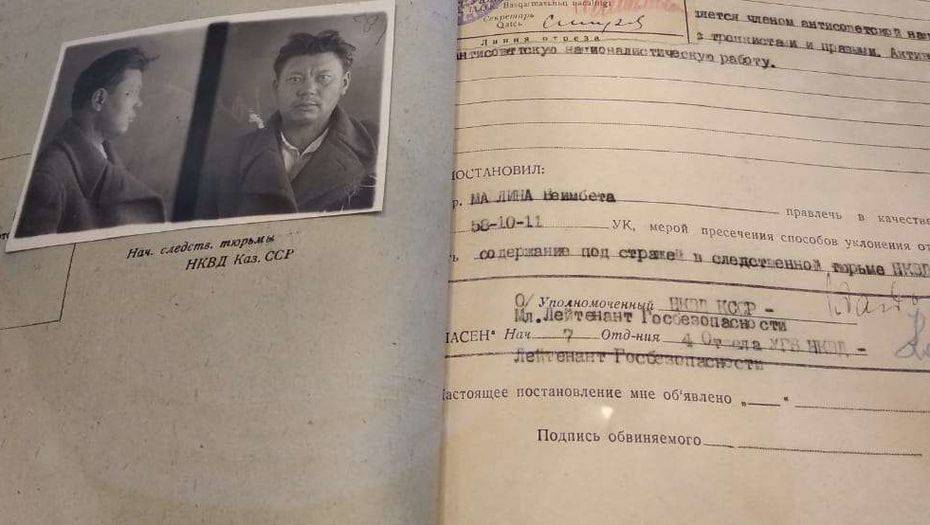 Нач. следств. тюрьмы
НКВД Каз. ССР
Секретарь
Qatcь
Линия отреза
яется членом антисоветской
с троцкистами и правыми. Актив
антисоветскую националистическую работу.
ПОСТАНОВИЛ:
р. МАЙЛИНА Беимбета
правлечь в качестве
58-10-11 УК, мерой пресечения способов уклонения от
содержание под стражей в следственной тюрьме НКВД
О/ Уполномоченный НКВД КССР –
Мл.Лейтенант Госбезопасности
ЛАСЕН" Нач. 7 Отд-ния 4 Отдела УГБ НКВД –
Лейтенант Госбезопасности
Настоящее постановление мне об'явлено „ "
Подпись обвиняемого